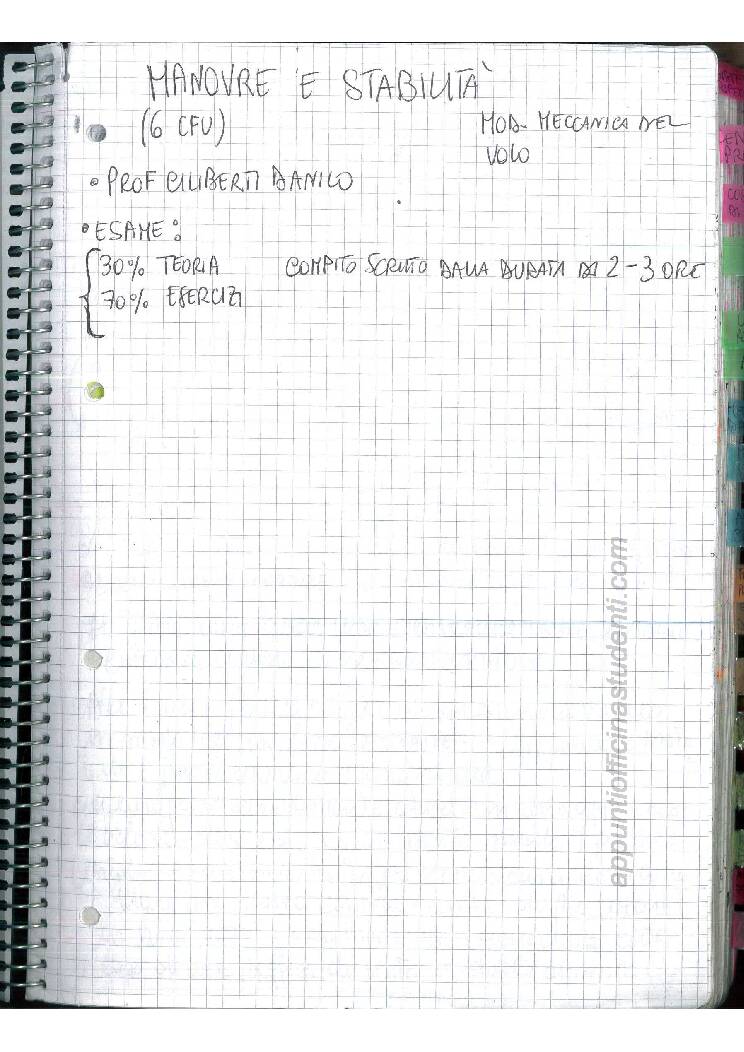 MANOVRE E STABILITÀ
(6 CFU)
MOD. MECCANICA DEL
VOLO
• PROF CILIBERTI DANILO
• ESAME:
30% TEORIA COMPITO SCRITTO DALLA DURATA DI 2-3 ORE
70% ESERCIZI
appuntiofficinastudenti.com